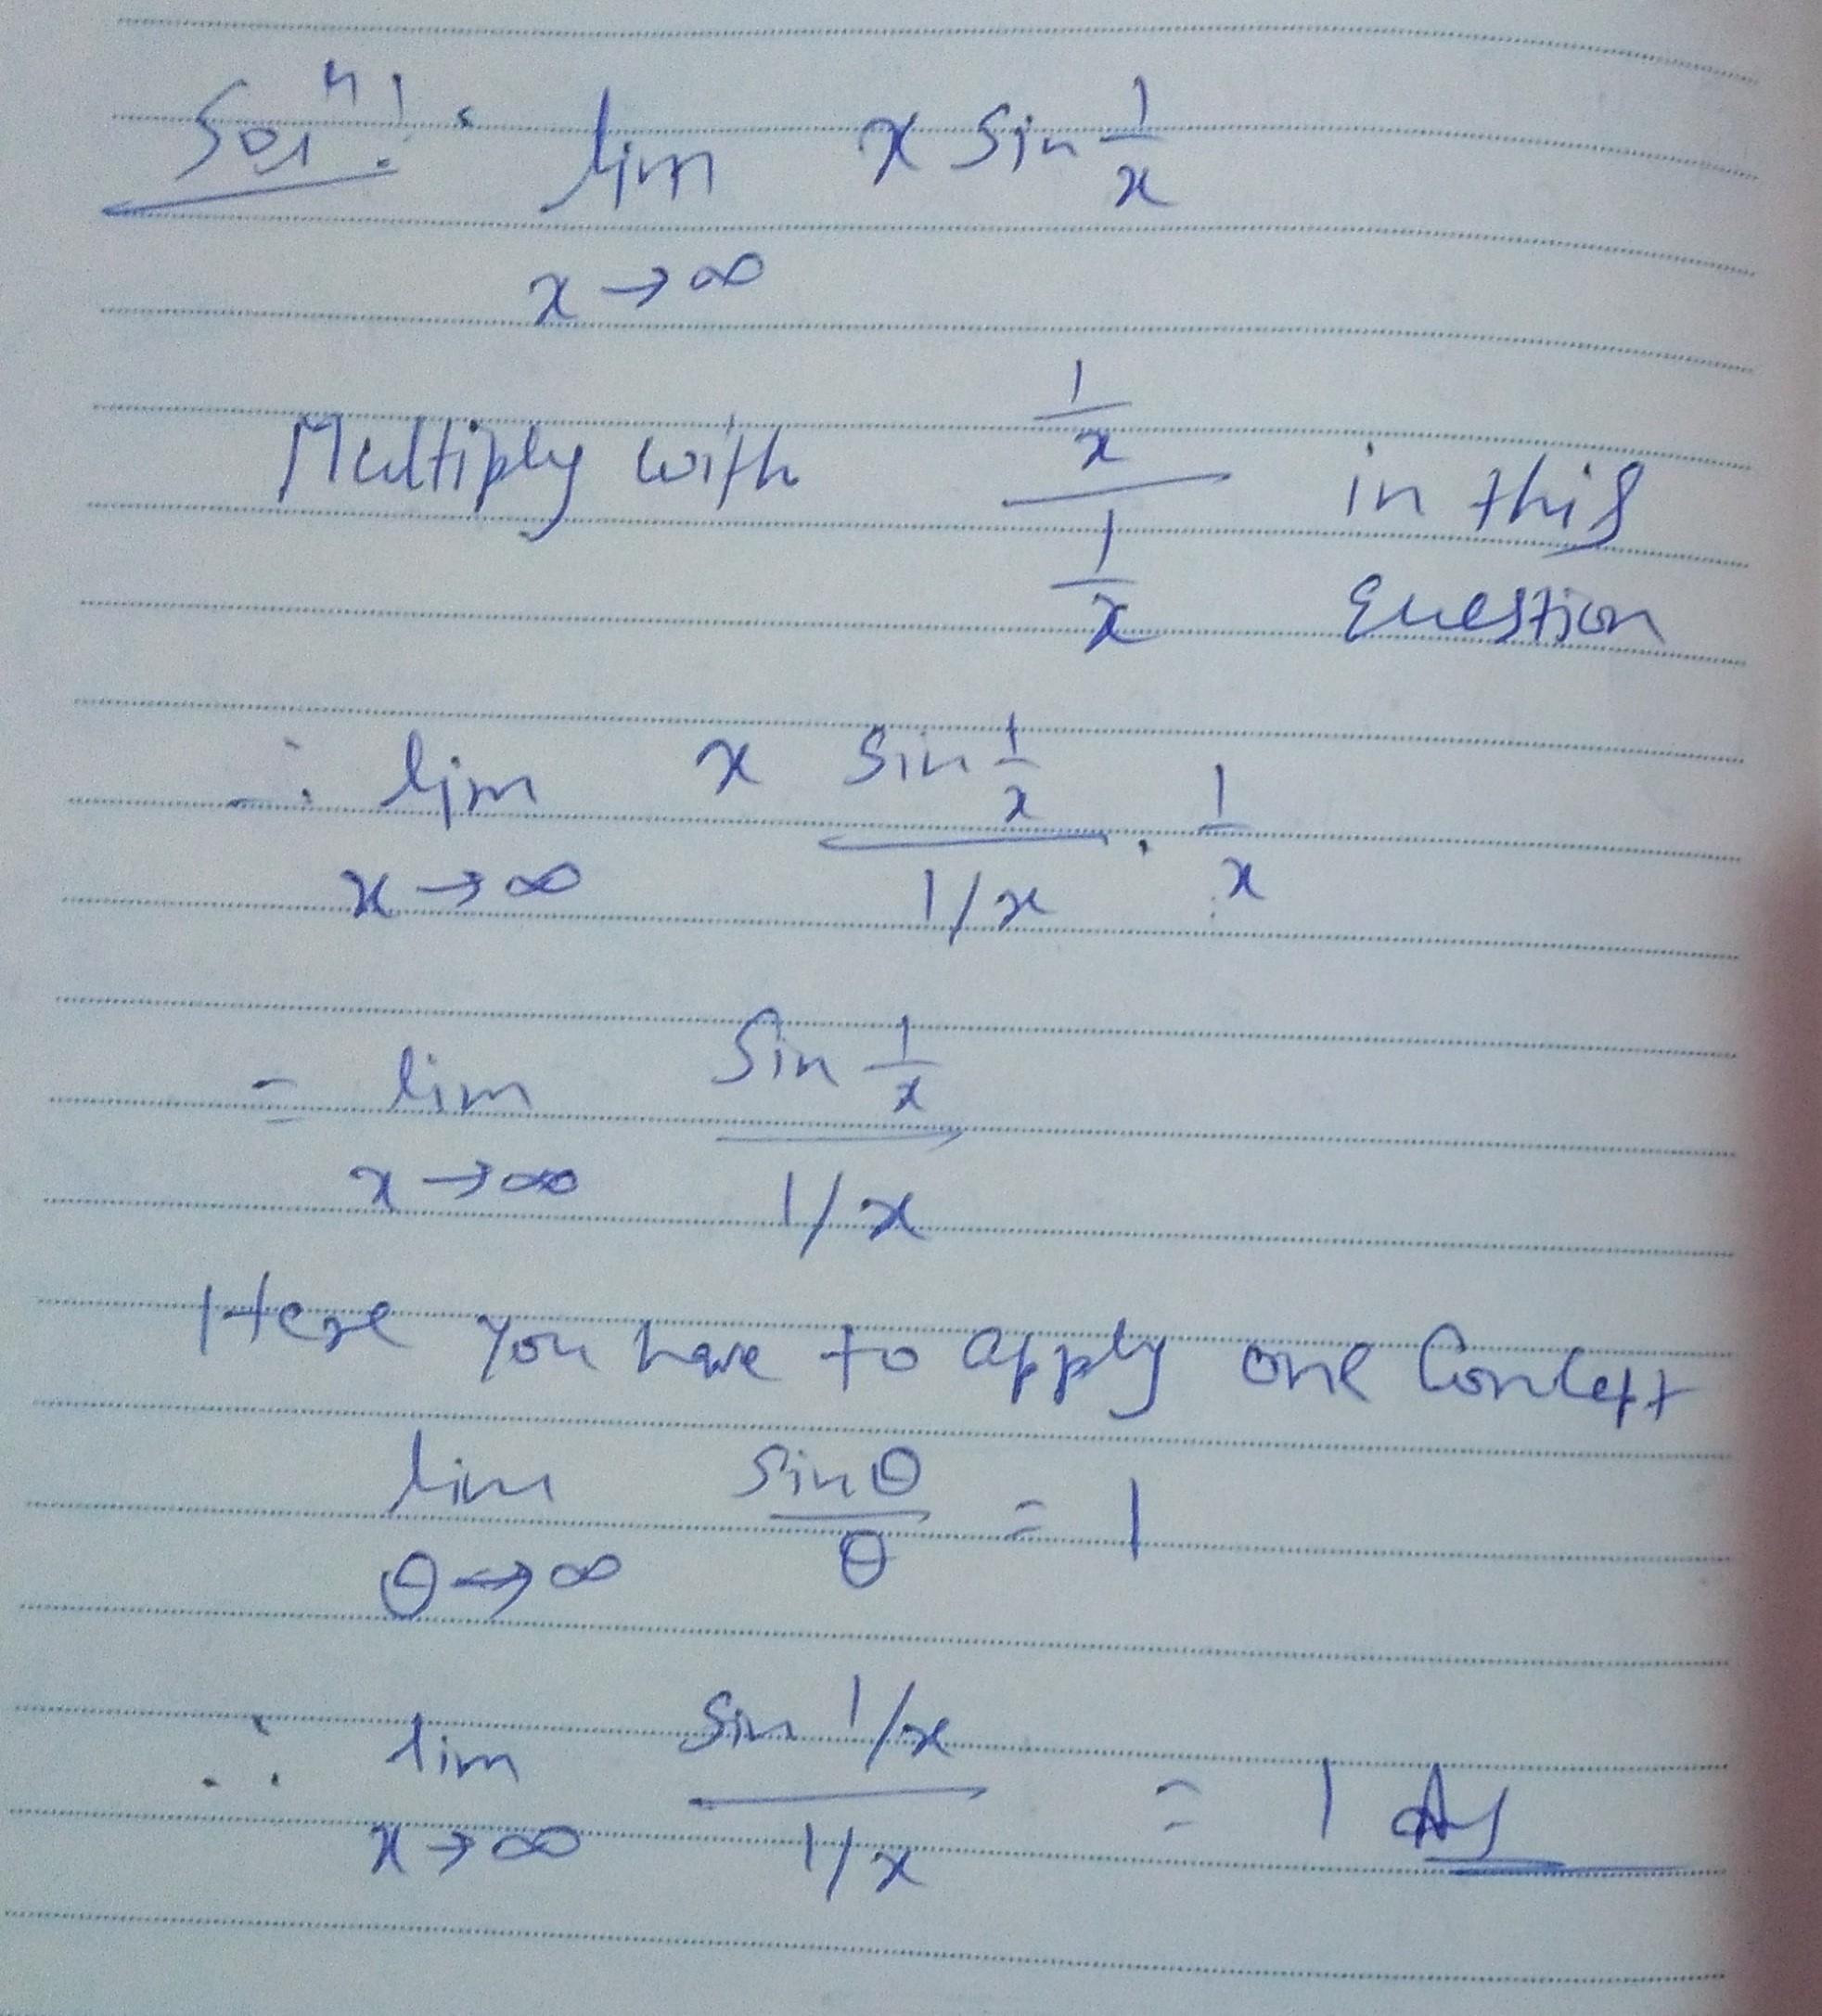 Solⁿ: lim x sin 1/x
x→∞
Multiply with (1/x)/(1/x) in this
question
∴ lim x (sin 1/x)/(1/x) · 1/x
x→∞
= lim (sin 1/x)/(1/x)
x→∞
Here you have to apply one Concept
lim sinθ/θ = 1
θ→∞
∴ lim (sin 1/x)/(1/x) = 1 Ans
x→∞